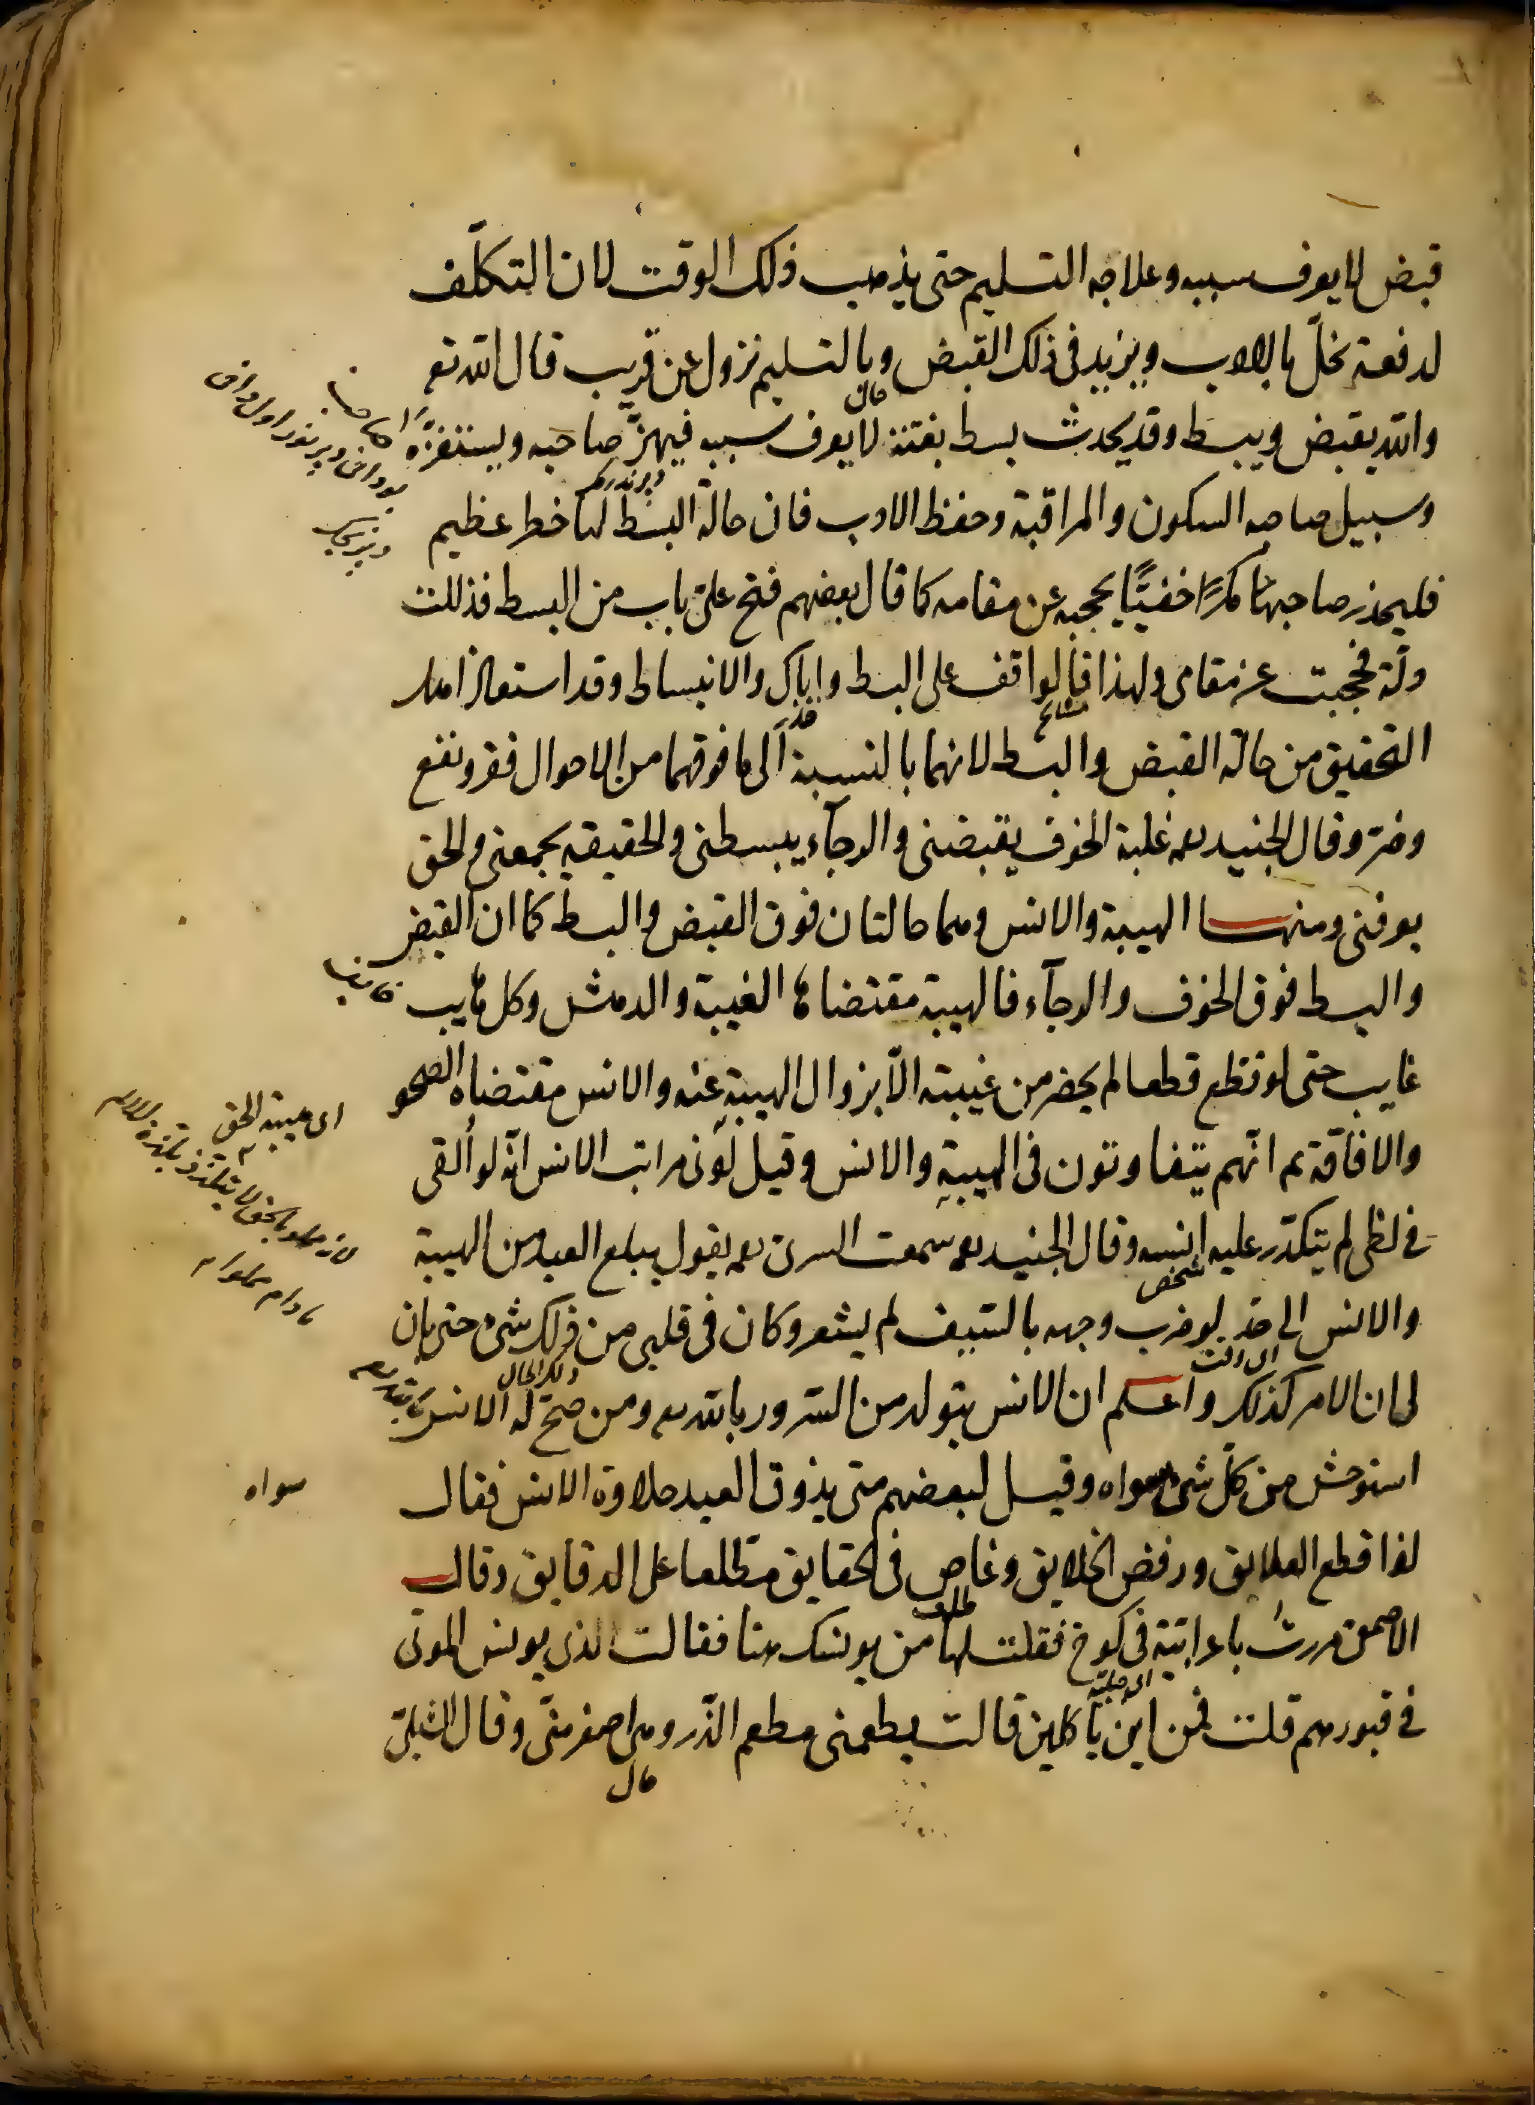 قبض لا يعرف سببه وعلاجه التسليم حتى يذهب ذلك الوقت لان التكلّف
لدفعه يخلّ بالادب ويزيد في ذلك القبض وبالتسليم نزول عن قريب قال الله تع
والله يقبض ويبسط وقد يحدث بسط بغتة لا يعرف سببه فيهزّ صاحبه ويستفزّه
حال
وسبيل صاحبه السكون والمراقبة وحفظ الادب فان حالة البسط لها خطر عظيم
فليحذر صاحبها مكرًا خفيًّا يحجبه عن مقامه كما قال بعضهم فتح علىّ باب من البسط فزللت
زلّة فحجبت عن مقامى ولهذا قالوا قف على البسط واياك والانبساط وقد استعاذ اهل
مشايخ
التحقيق من حالة القبض والبسط لانهما بالنسبة الى ما فوقهما من الاحوال فقر ونفع
وضرّ وقال الجنيد رحمه غلبة الخوف يقبضنى والرجآء يبسطنى والحقيقه يجمعنى والحق
يفرقنى ومنها الهيبة والانس وهما حالتان فوق القبض والبسط كما ان القبض
والبسط فوق الخوف والرجآء فالهيبة مقتضاها الغيبة والدهش وكل هايب
غايب حتى لو قطع قطعا لم يحضر من غيبته الّا بزوال الهيبة عنه والانس مقتضاه الصحو
والافاقة ثم انّهم يتفاوتون فى الهيبة والانس وقيل ادنى مراتب الانس انّه لو ألقى
اى هيبة الحق
فى لظى لم يتكدّر عليه انسه وقال الجنيد رحمه سمعت السرى رحمه يقول يبلغ العبد من الهيبة
مادام مملوا به
والانس الى حدّ لو ضرب وجهه بالسّيف لم يشعر وكان فى قلبى من ذلك شئ حتى بان
شخص
لى ان الامر كذلك واعلم ان الانس يتولد من السّرور بالله ومن صحّ له الانس بالله
ذلك الحال
استوحش من كلّ شئ سواه وقيل لبعضهم متى يذوق العبد حلاوة الانس فقال
سواه
اذا قطع العلايق ورفض الخلايق وغاص فى الحقايق مطّلعا على الدقايق وقال
الاصمعى مررت باعرابيّة فى كوخ فقلت لها من يونسك هنا فقالت الذى يونس الموتى
فى قبورهم قلت فمن اين تأكلين قالت يطعمنى مطعم الذّر وهى اصغر منّى وقال الشبلىّ
حال